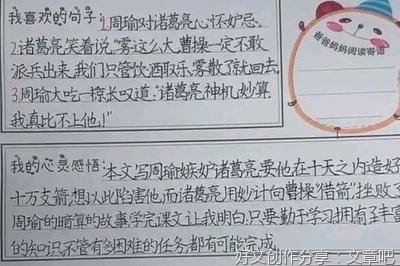 我喜欢的句子：1.周瑜对诸葛亮心怀妒忌。
2.诸葛亮笑着说，"雾这么大，曹操一定不敢
派兵出来，我们只管饮酒取乐，雾散了就回去。
3.周瑜大吃一惊，长叹道："诸葛亮神机妙算，
我真比不上他！"
爸爸妈妈阅读寄语
我的心灵感悟：本文写周瑜嫉妒诸葛亮，要他在十天之内造好
十万支箭，想以此陷害他，而诸葛亮用妙计向曹操"借箭"，挫败了
周瑜的暗算的故事学完课文让我明白，只要勤于学习拥有了丰富
的知识不管有多困难的任务都有可能完成。
好文创作分享：文章吧